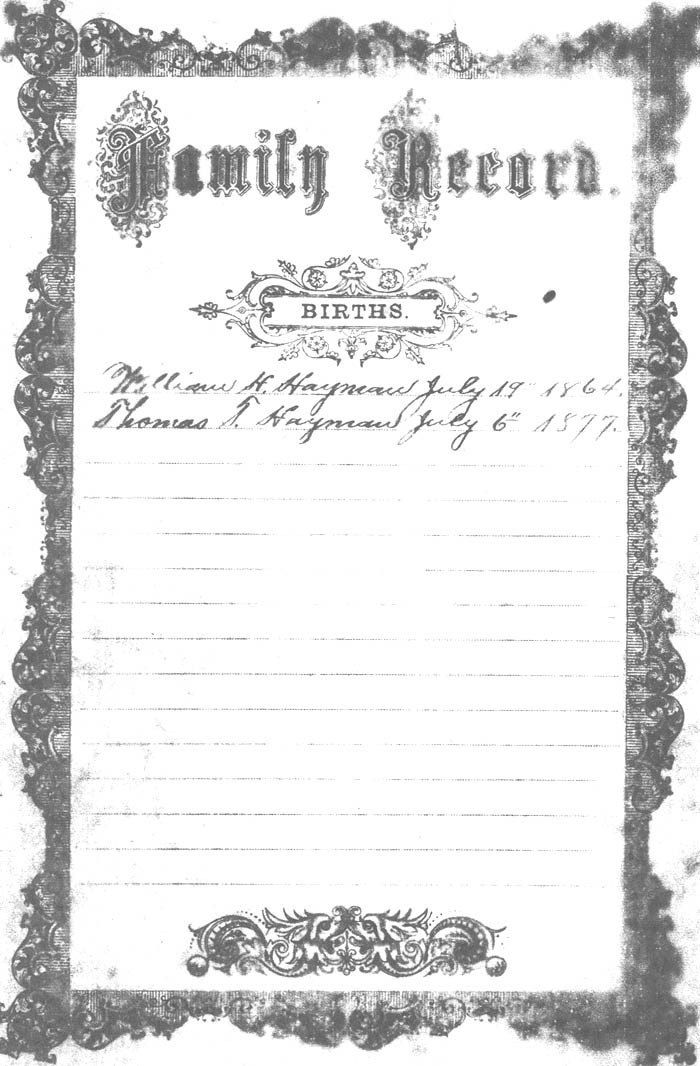 Family Record.
BIRTHS.
William H. Hayman July 19" 1864.
Thomas T. Hayman July 6" 1877.